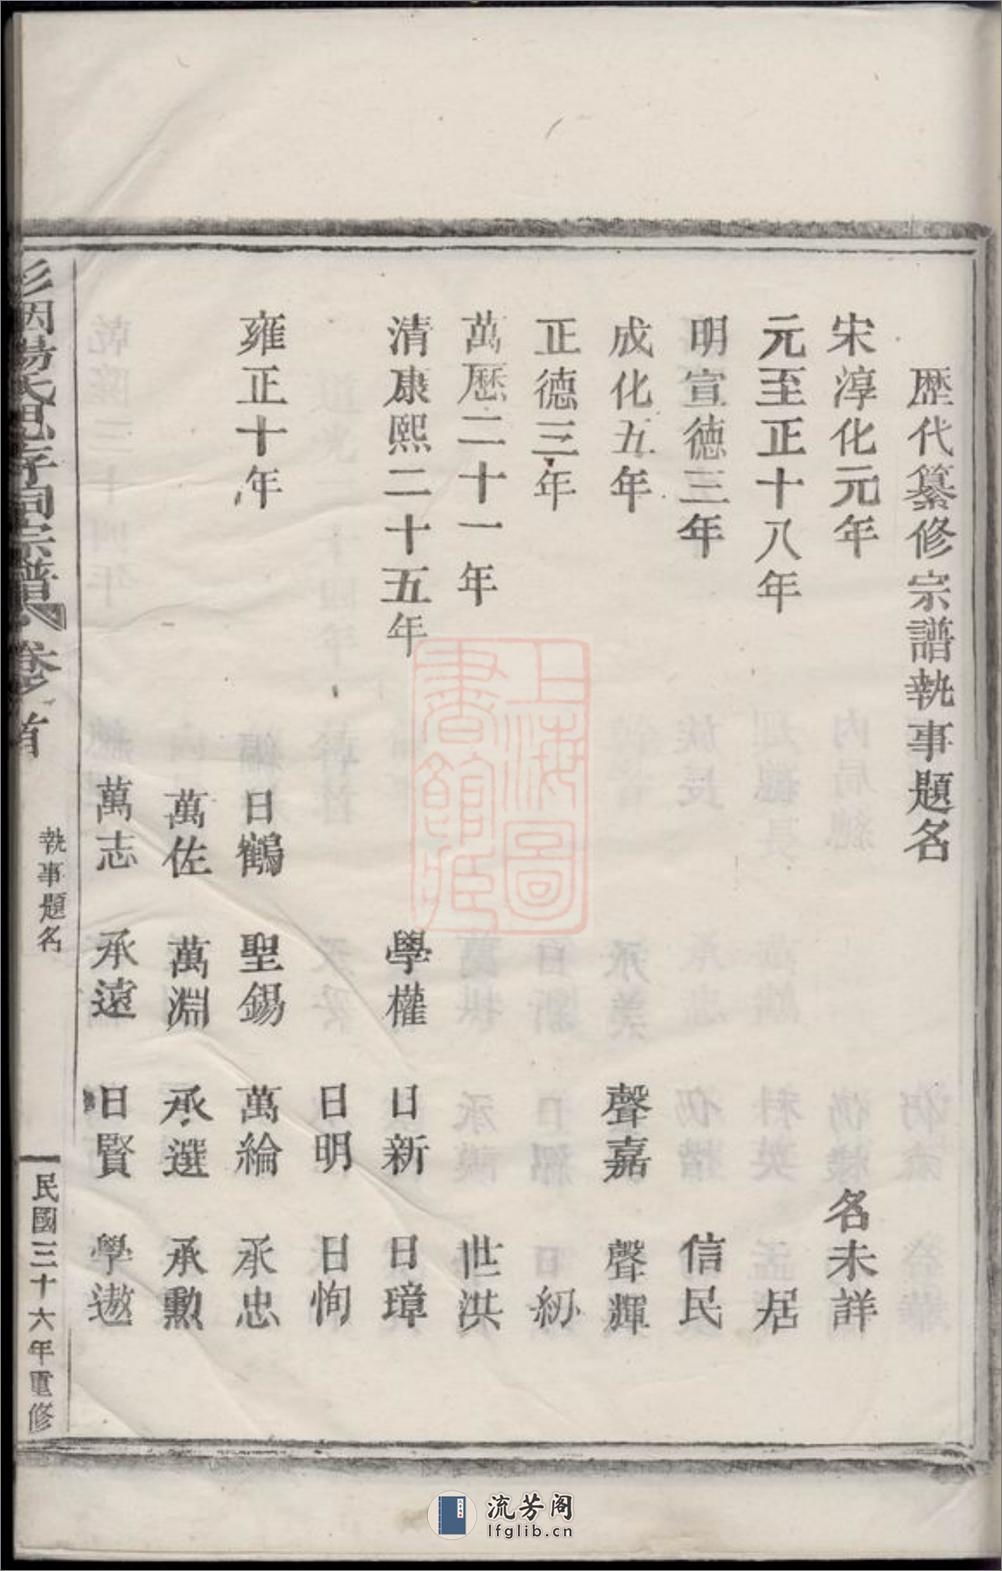 歷代纂修宗譜執事題名
宋淳化元年　名未詳
元至正十八年　居
明宣德三年　信民
成化五年　聲嘉　聲輝
正德三年　初
萬歷二十一年　世洪
清康熙二十五年　學權　日新　日璋
日明　日恂
雍正十年　日鶴　聖錫　萬綸　承忠
萬佐　萬淵　承選　承勳
萬志　承遠　日賢　學遨
氏思存祠宗譜　卷首
執事題名
民國三十六年重修
上海圖書館藏
流芳阁
lfglib.cn